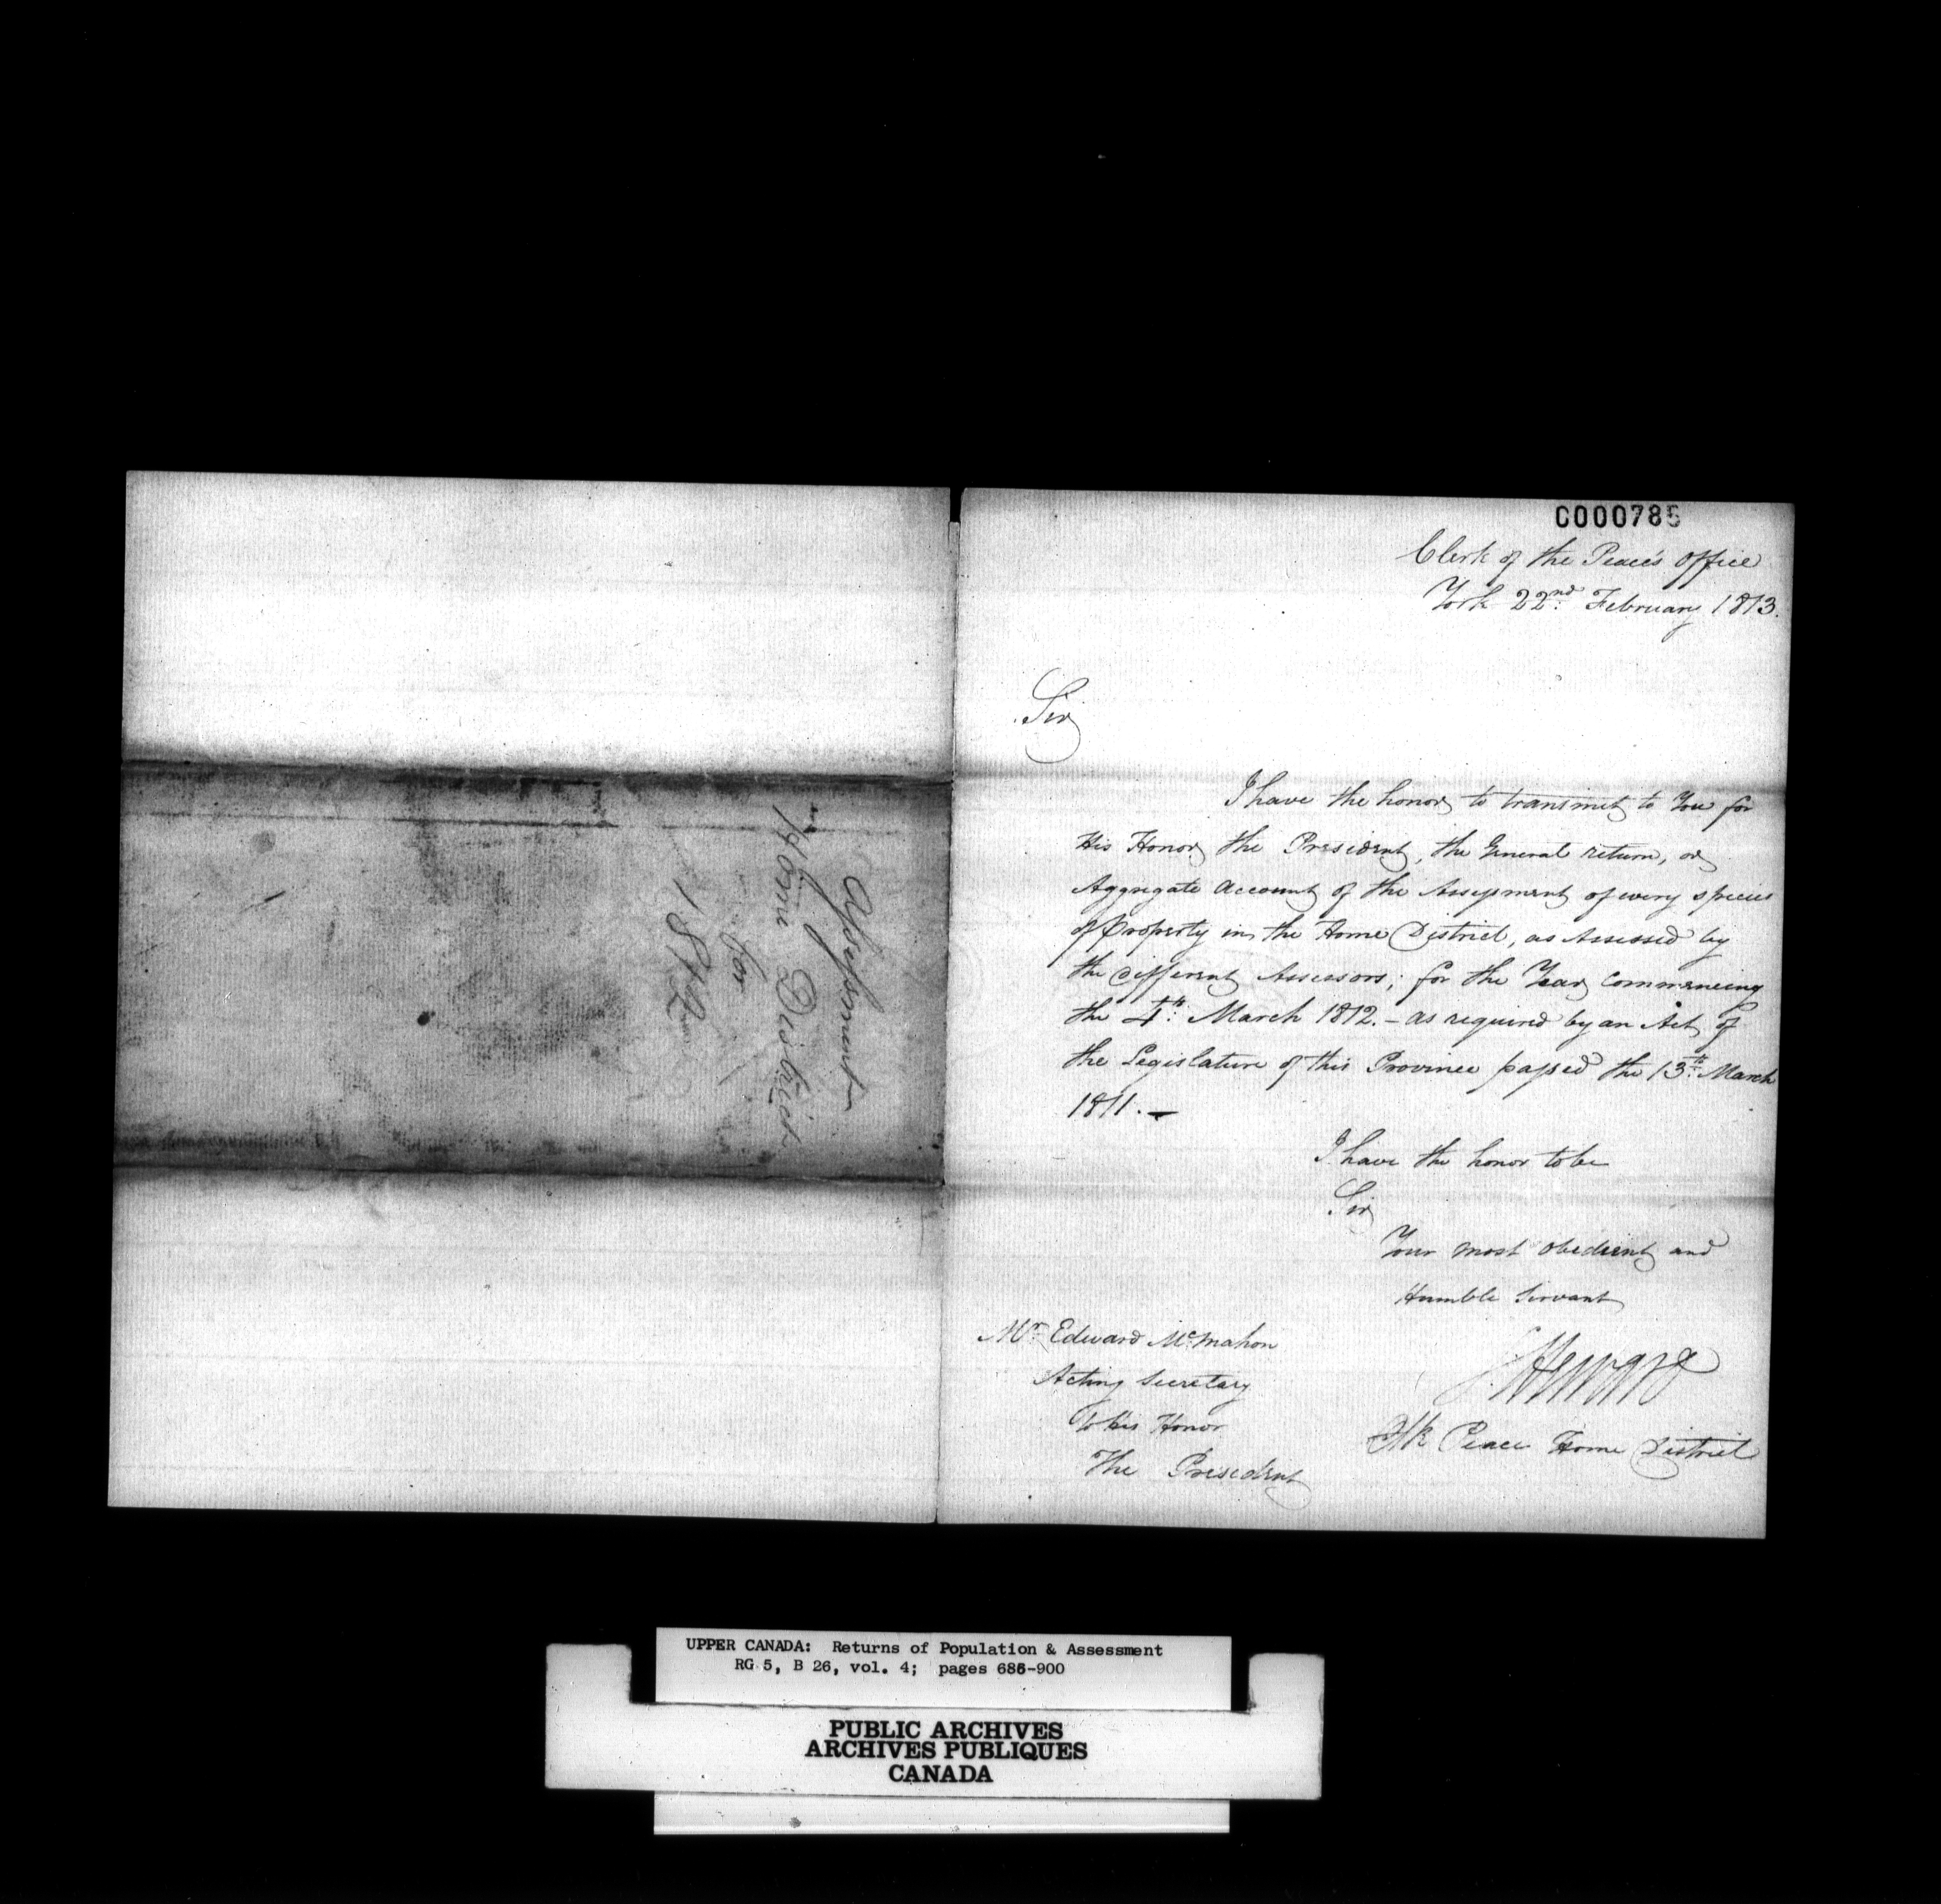 Assessment
Home District
for
1812
C000785
Clerk of the Peace's Office
York 22nd February 1813.
Sir
I have the honor to transmit to You for
His Honor the President, the General return, or
Aggregate Account of the Assessment of every species
of Property in the Home District, as Assessed by
the different Assessors; for the Year commencing
the 4th March 1812. - as required by an Act of
the Legislature of this Province passed the 13th March
1811. -
I have the honor to be
Sir
Your most obedient and
Humble Servant
Mr Edward McMahon
Acting Secretary
to His Honor
The President
Heward
Clk Peace Home District
UPPER CANADA: Returns of Population & Assessment
RG 5, B 26, vol. 4; pages 686-900
PUBLIC ARCHIVES
ARCHIVES PUBLIQUES
CANADA